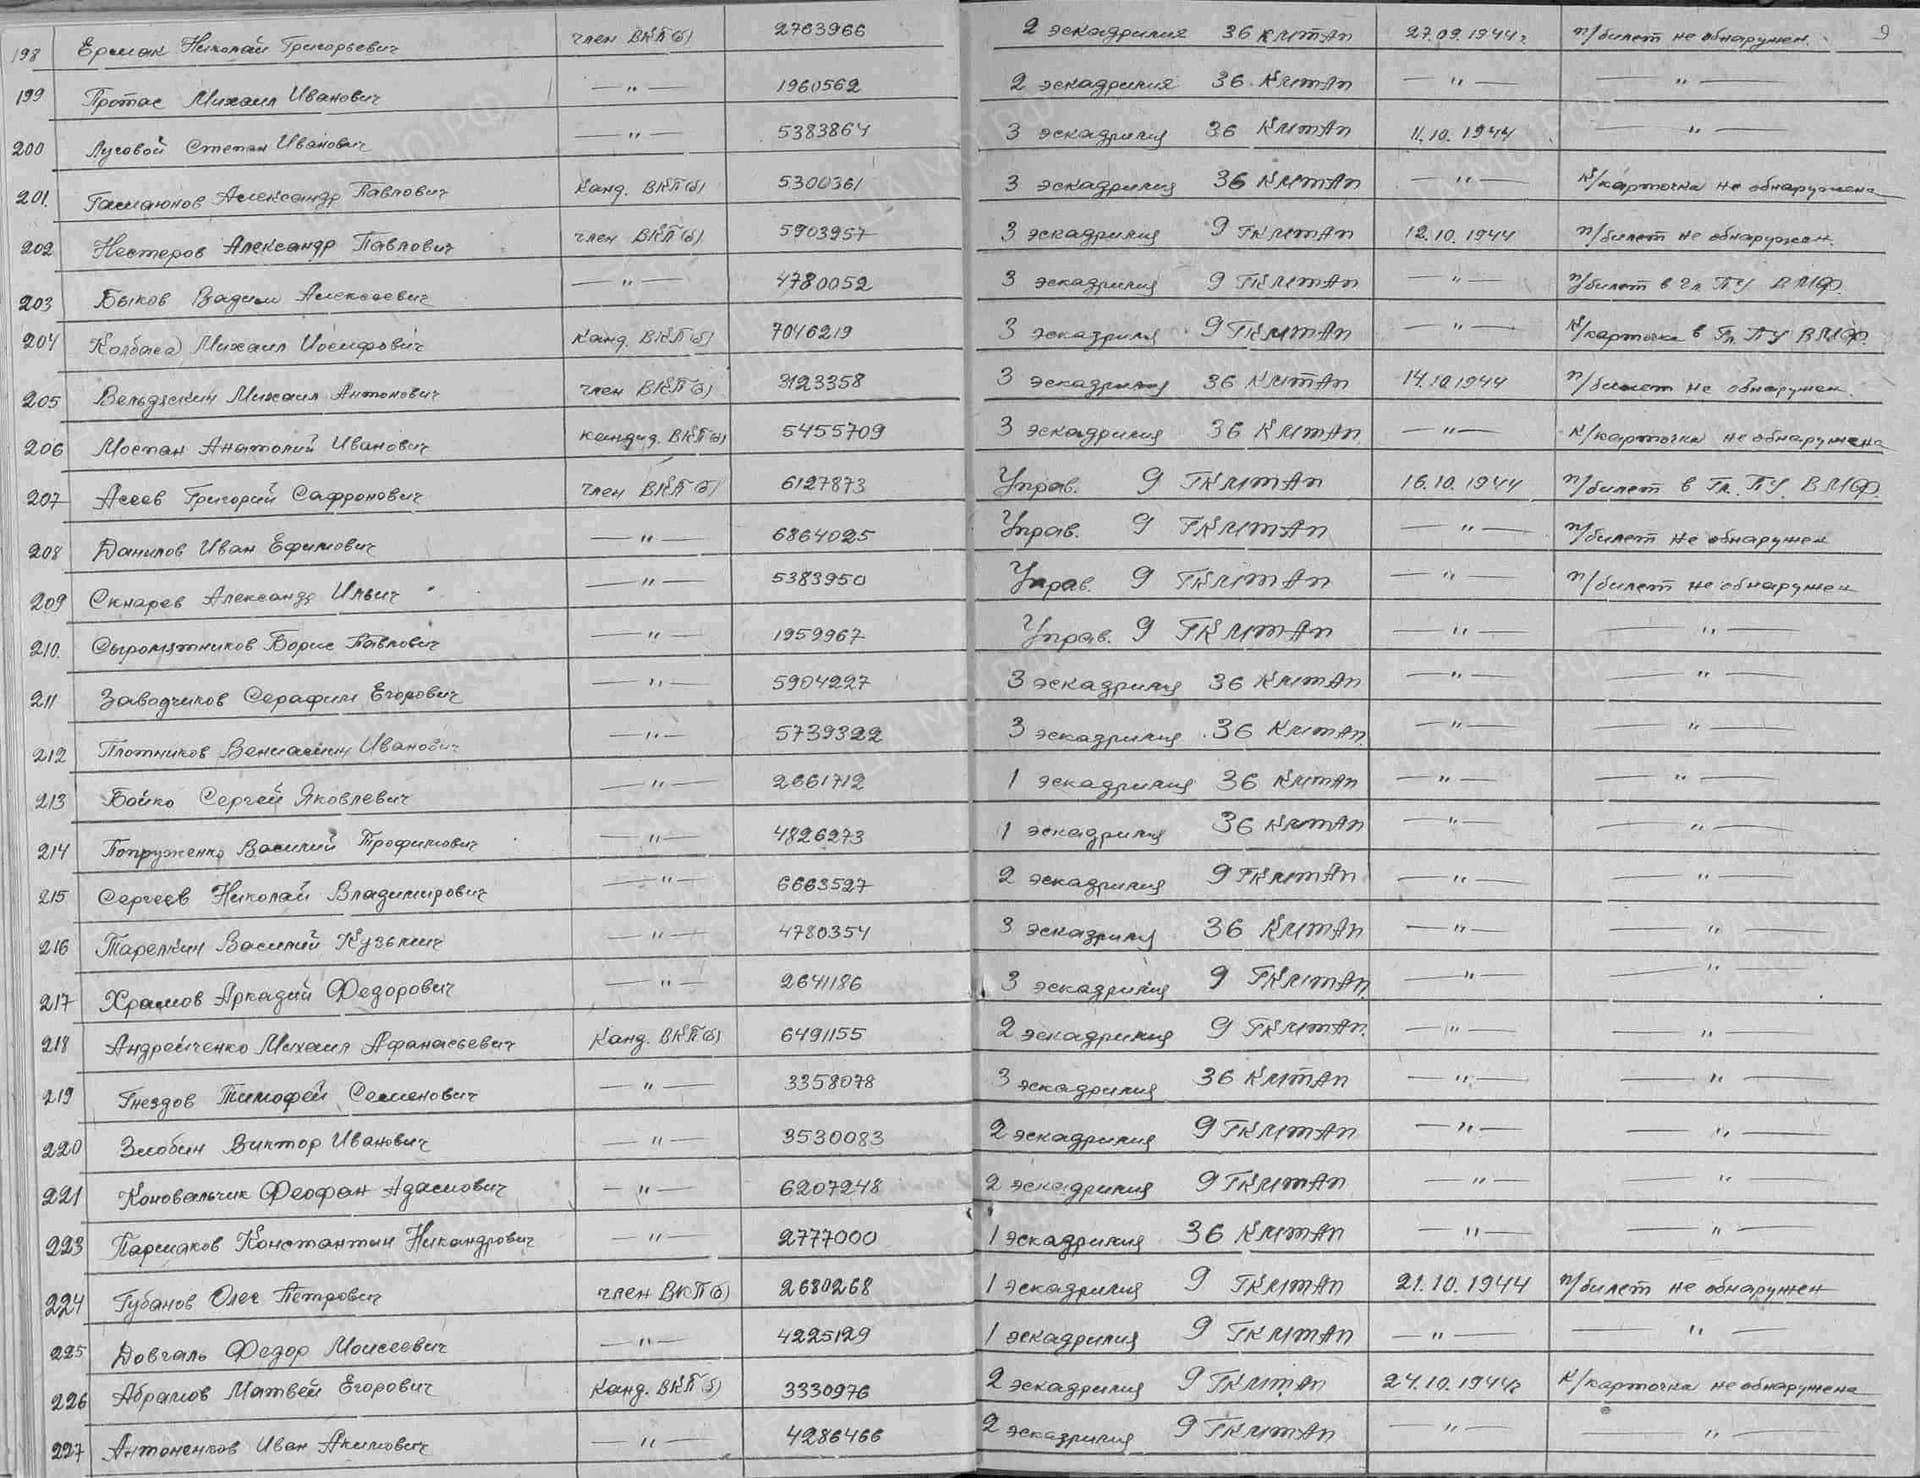 9
198 Ермак Николай Григорьевич член ВКП(б) 2763966 2 эскадрилия 36 КМТАП 27.09.1944г. п/билет не обнаружен.
199 Протас Михаил Иванович —"— 1960562 2 эскадрилия 36 КМТАП —"— —"—
200 Луговой Степан Иванович —"— 5383864 3 эскадрилия 36 КМТАП 11.10.1944 —"—
201. Гамаюнов Александр Павлович Канд. ВКП(б) 5300361 3 эскадрилия 36 КМТАП —"— К/карточка не обнаружена
202 Нестеров Александр Павлович член ВКП(б) 5903957 3 эскадрилия 9 ГКМТАП 12.10.1944 п/билет не обнаружен.
203 Быков Вадим Алексеевич —"— 4780052 3 эскадрилия 9 ГКМТАП —"— п/билет в Гл. ПУ ВМФ.
204 Колбаса Михаил Иосифович Канд. ВКП(б) 7046219 3 эскадрилия 9 ГКМТАП —"— К/карточка в Гл. ПУ ВМФ.
205 Вельдяскин Михаил Антонович член ВКП(б) 3123358 3 эскадрилия 36 КМТАП 14.10.1944 п/билет не обнаружен.
206 Мостан Анатолий Иванович кандид. ВКП(б) 5455709 3 эскадрилия 36 КМТАП. —"— К/карточка не обнаружена
207 Асеев Григорий Сафронович член ВКП(б) 6127873 Управ. 9 ГКМТАП 16.10.1944 п/билет в Гл. ПУ. ВМФ.
208 Данилов Иван Ефимович —"— 6864025 Управ. 9 ГКМТАП —"— п/билет не обнаружен
209 Скнарев Александр Ильич —"— 5383950 Управ. 9 ГКМТАП —"— п/билет не обнаружен
210. Сыромятников Борис Павлович —"— 1959967 Управ. 9 ГКМТАП —"— —"—
211 Заводчиков Серафим Егорович —"— 5904227 3 эскадрилия 36 КМТАП —"— —"—
212 Плотников Вениамин Иванович —"— 5739322 3 эскадрилия 36 КМТАП. —"— —"—
213 Бойко Сергей Яковлевич —"— 2661712 1 эскадрилия 36 КМТАП —"— —"—
214 Попруженко Василий Трофимович —"— 4826273 1 эскадрилия 36 КМТАП —"— —"—
215 Сергеев Николай Владимирович —"— 6663527 2 эскадрилия 9 ГКМТАП —"— —"—
216 Тарелкин Василий Кузьмич —"— 4780354 3 эскадрилия 36 КМТАП —"— —"—
217 Храмов Аркадий Федорович —"— 2641186 3 эскадрилия 9 ГКМТАП. —"— —"—
218 Андрейченко Михаил Афанасьевич Канд. ВКП(б) 6491155 2 эскадрилия 9 ГКМТАП. —"— —"—
219 Гнездов Тимофей Семенович —"— 3358078 3 эскадрилия 36 КМТАП —"— —"—
220 Злобин Виктор Иванович —"— 3530083 2 эскадрилия 9 ГКМТАП —"— —"—
221 Коновальчик Феофан Адамович —"— 6207248 2 эскадрилия 9 ГКМТАП —"— —"—
223 Пармаков Константин Никандрович —"— 2777000 1 эскадрилия 36 КМТАП —"— —"—
224 Губанов Олег Петрович член ВКП(б) 2680268 1 эскадрилия 9 ГКМТАП 21.10.1944 п/билет не обнаружен
225 Довгаль Федор Моисеевич —"— 4225129 1 эскадрилия 9 ГКМТАП —"— —"—
226 Абрамов Матвей Егорович Канд. ВКП(б) 3330976 2 эскадрилия 9 ГКМТАП 24.10.1944г К/карточка не обнаружена
227 Антоненков Иван Акимович —"— 4286466 2 эскадрилия 9 ГКМТАП —"— —"—